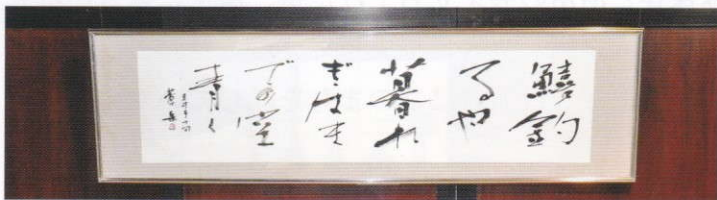 鱚釣
るや
暮れ
ぎはま
での空
青く